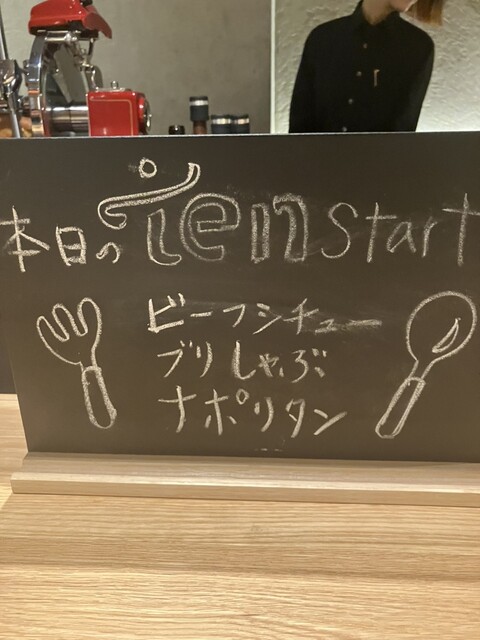 本日の ten start
ビーフシチュー
ブリしゃぶ
ナポリタン